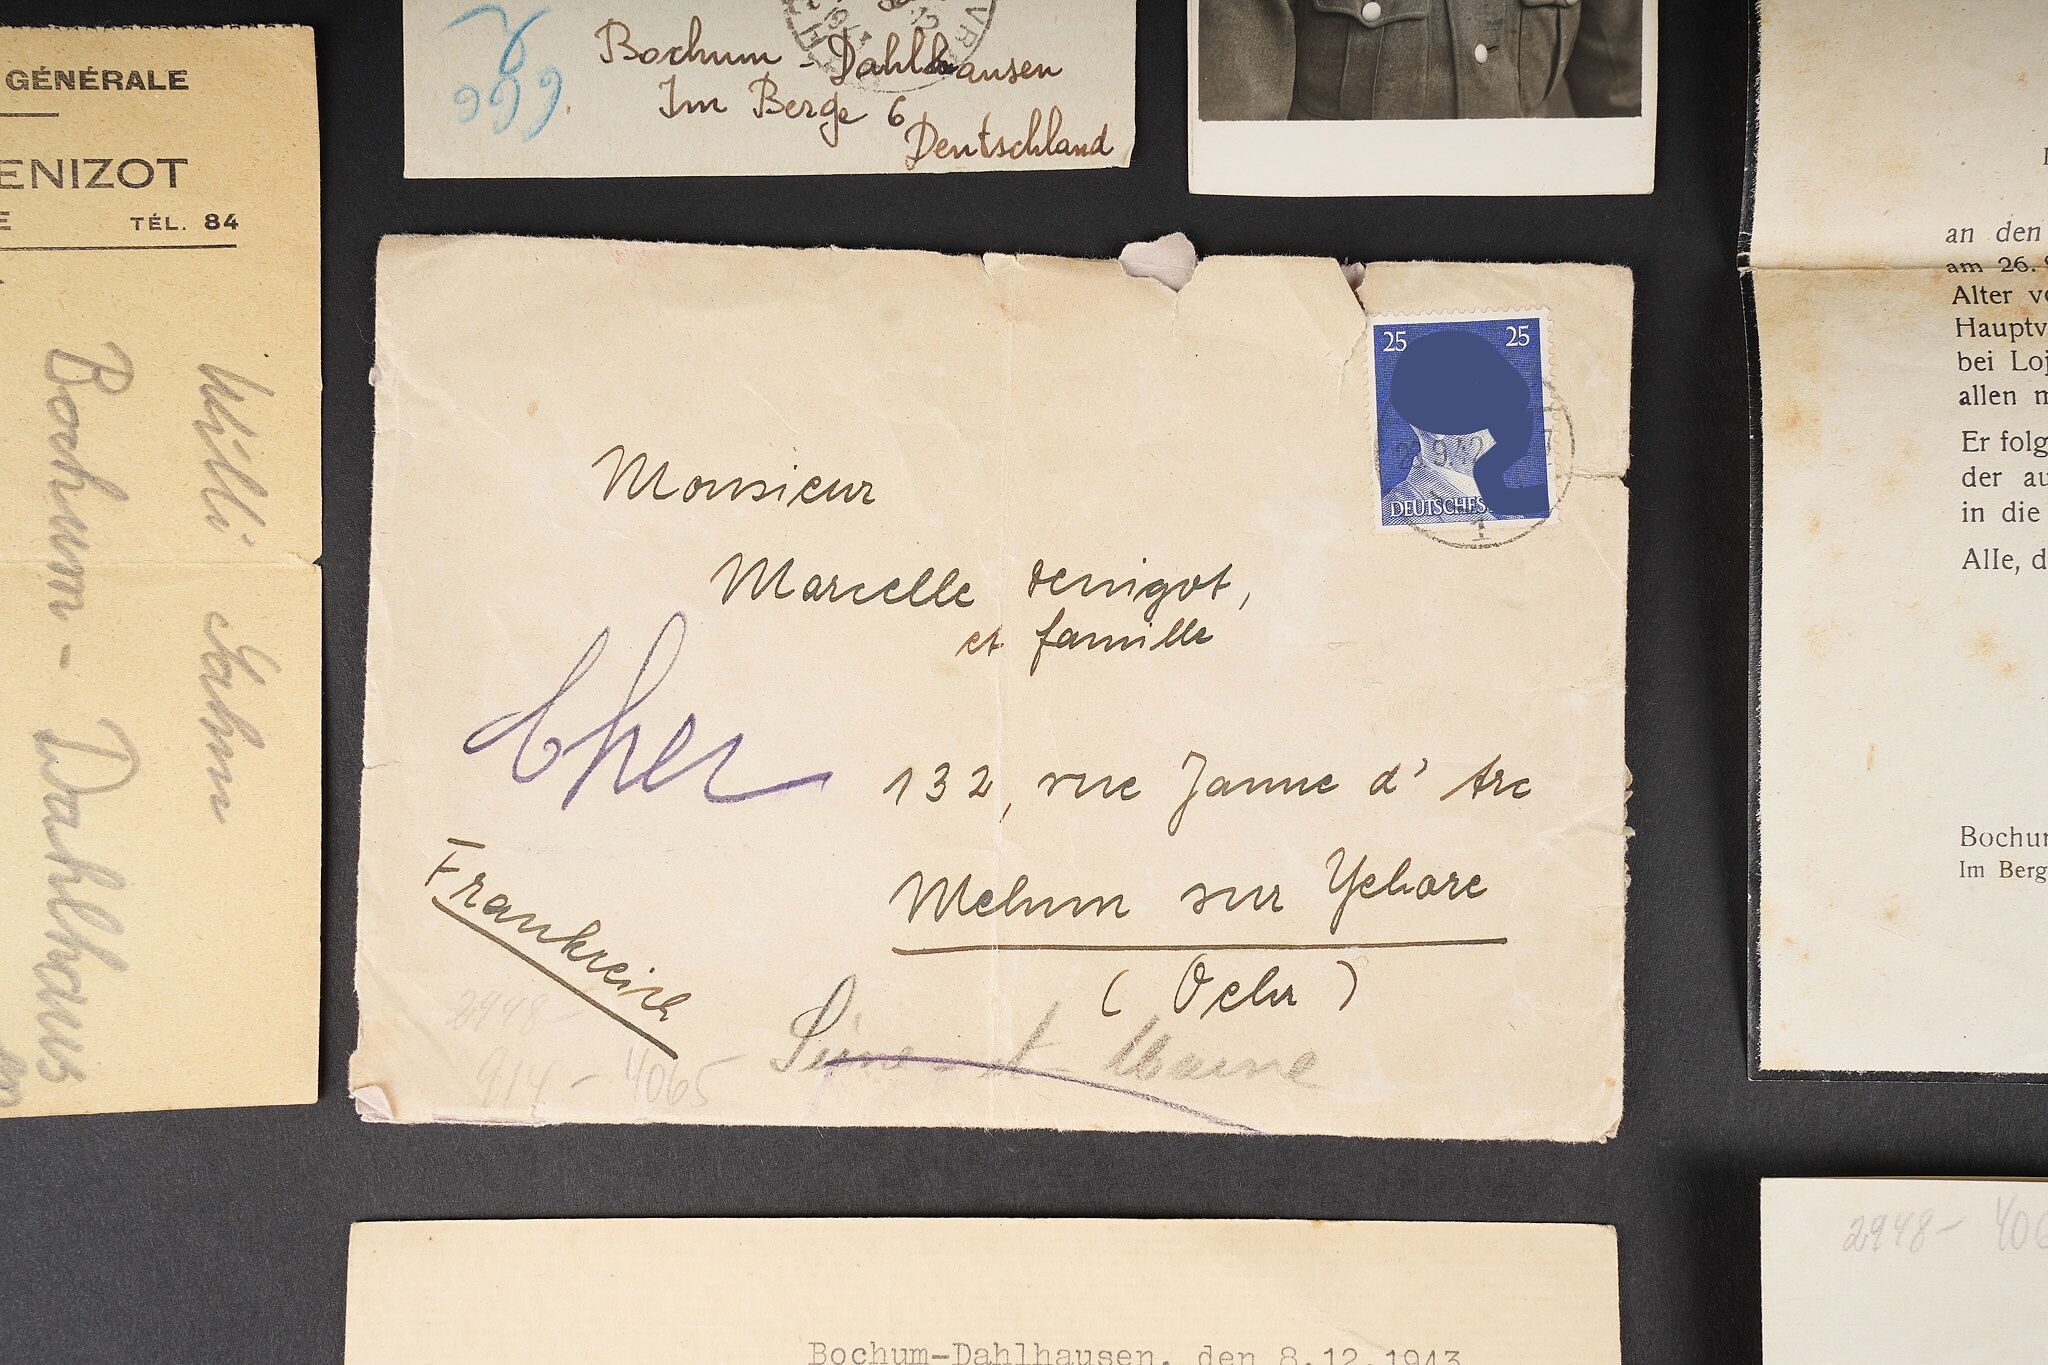 GÉNÉRALE
ENIZOT
E TÉL. 84
Willi Lahm
Bochum - Dahlhaus
666.
Bochum - Dahlhausen
Im Berge 6
Deutschland
an den
am 26.
Alter vo
Hauptv
bei Loj
allen m
Er folg
der au
in die
Alle, d
Bochum
Im Berg
25 25
DEUTSCHES
Monsieur
Marcelle Denigot,
et famille
Cher
132, rue Janne d' Arc
Mehum sur Yehore
( Oehr )
Frankreich
2948-
914 - 4065
Seine et Marne
Bochum-Dahlhausen, den 8.12.1943
2948- 406